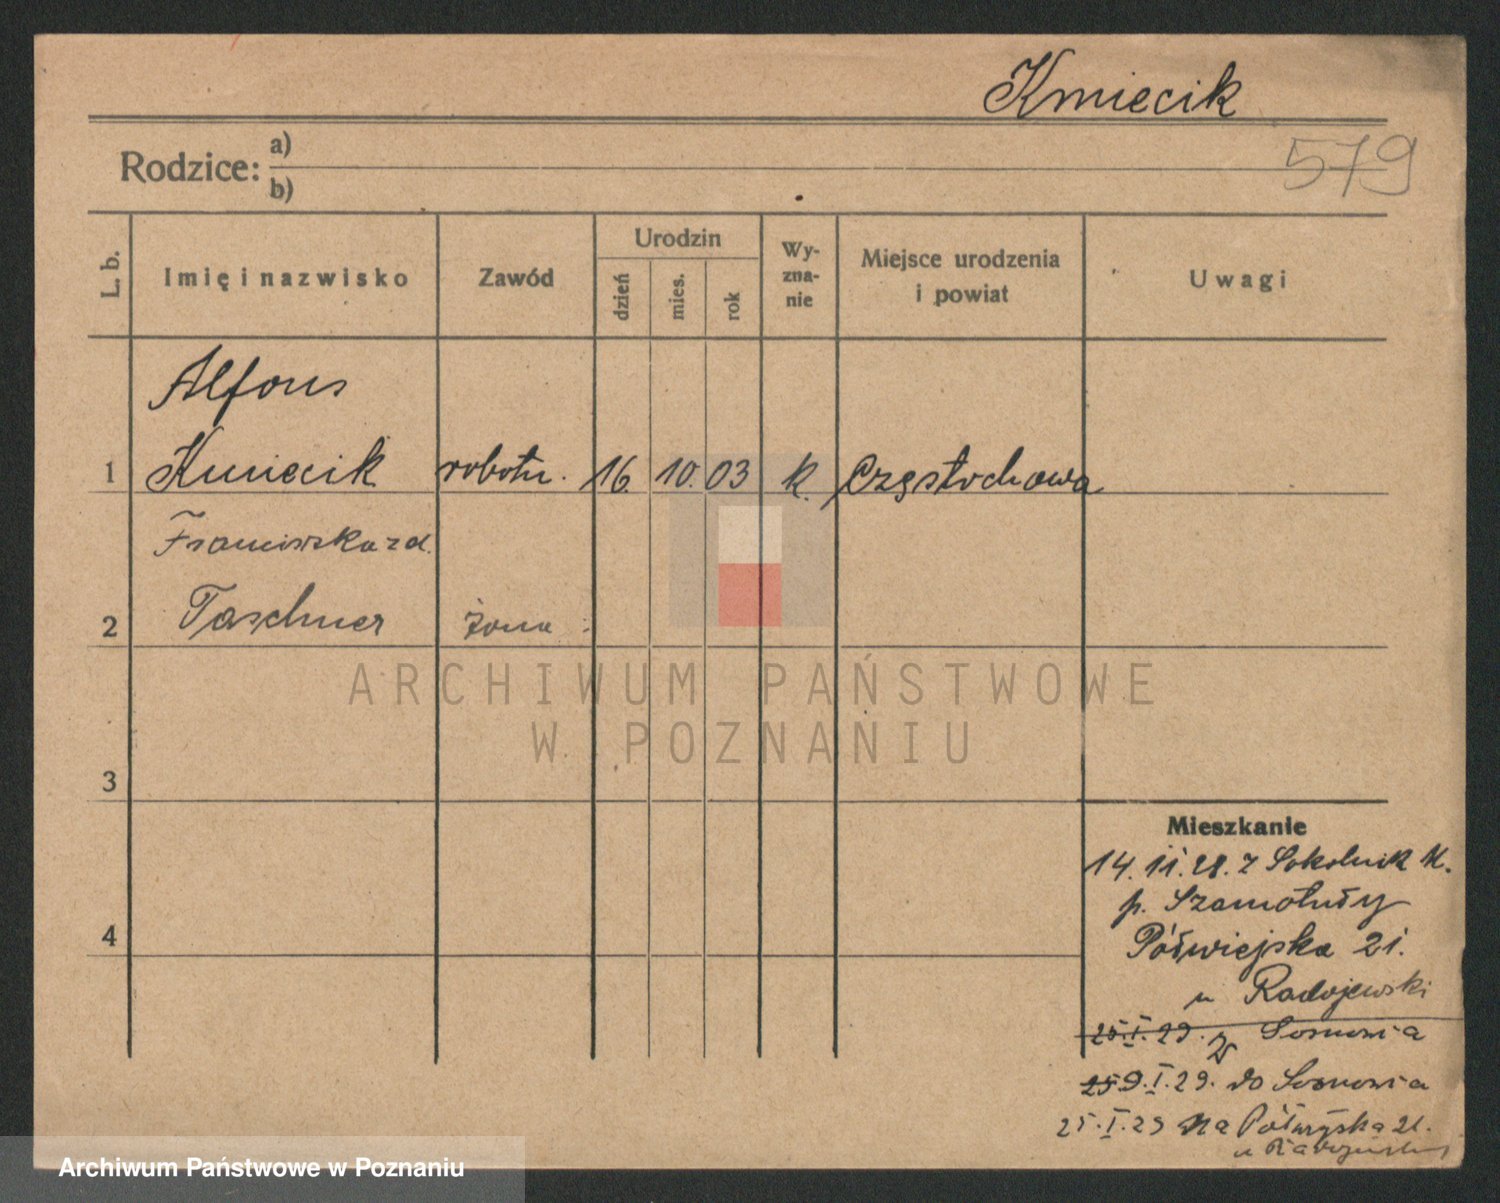 Kmiecik
579
Rodzice: a)
b)
L. b.
Imię i nazwisko
Zawód
Urodzin
dzień
mies.
rok
Wy-
zna-
nie
Miejsce urodzenia
i powiat
Uwagi
Alfons
1 Kmiecik robotn. 16. 10. 03 k. Częstochowa
Franciszka zd.
2 Taschner żona
3
4
ARCHIWUM PAŃSTWOWE
W POZNANIU
Mieszkanie
14. 11. 28. z Sokolnik M.
p. Szamotuły
Półwiejska 21.
u Radojewski
25.I.29. z Sosnowia
25 9.I.29. do Sosnowia
25.I.29 na Półwiejska 21.
Archiwum Państwowe w Poznaniu